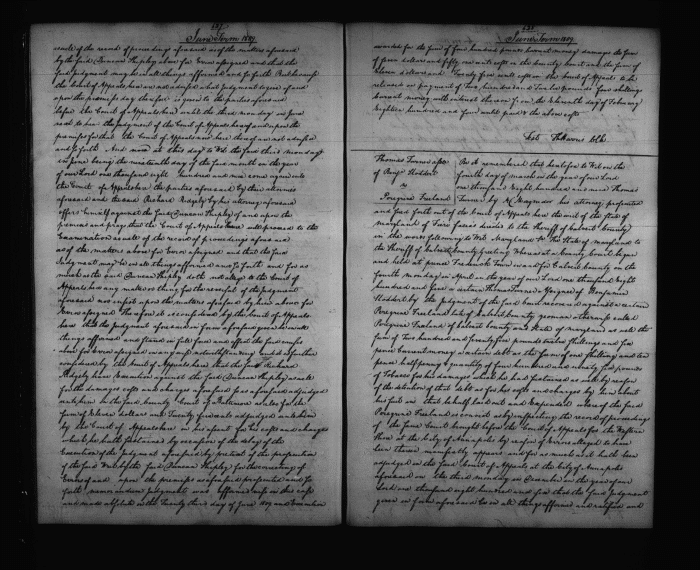 June Term 1809
as well of the record of proceedings aforesaid as of the matters aforesaid
by the said Duncan Shepley above for Error assigned and that the
said Judgment may be in all things affirmed and so forth But because
the Court of Appeals here are not advised what judgment to give of and
upon the premises day therefore is given to the parties aforesaid
before the Court of Appeals here until the third monday in June
next to hear the judgment of the Court of Appeals here of and upon the
premises for that the Court of Appeals now here thereof are not advised
and so forth And now at this day to Wit the said third monday
in June being the nineteenth day of the said month in the year
of our Lord one thousand eight hundred and nine come again into
the Court of Appeals here the parties aforesaid by their attornies
aforesaid and the said Richard Ridgely by his attorney aforesaid
offers himself against the said Duncan Shepley of and upon the
premises and prays that the Court of Appeals here will proceed to the
Examination as well of the record of proceedings aforesaid
as of the matters above for Error assigned and that the said
Judgment may be in all things affirmed and so forth and for as
much as the said Duncan Shepley doth not alledge to the Court of
Appeals here any matter or thing for the reversal of the judgment
aforesaid nor insist upon the matters aforesaid by him above for
Error assigned Therefore it is considered by the Court of Appeals
here that the judgment aforesaid in form aforesaid given be in all
things affirmed and stand in full force and effect the said causes
above for Error assigned in any wise notwithstanding And it is further
considered by the Court of Appeals here that the said Richard
Ridgely have Execution against the said Duncan Shepley as well
for the damages costs and charges aforesaid so as aforesaid adjudged
unto him in the said County Court of Baltimore as also for the
sum of Eleven dollars and Twenty five cents adjudged unto him
by the Court of Appeals here in his assent for his costs and charges
which he hath sustained by occasion of the delay of the
Execution of the Judgment aforesaid by pretext of the prosecution
of the said Writ by the said Duncan Shepley for the correcting of
Errors of and upon the premises as aforesaid prosecuted and so
forth memorandum Judgment was affirmed nisi in this case
and made absolute on the Twenty third day of June 1809 and Execution
June Term 1809
awarded for the sum of four hundred pounds current money damages the sum
of five dollars and fifty one cents costs in the County Court and the sum of
Eleven dollars and Twenty five cents costs in the Court of Appeals to be
released on payment of Two hundred and Twelve pounds four shillings
current money with interest thereon from the Eleventh day of February
Eighteen hundred and four until paid & the above costs
Test Tho Harris Clk
Thomas Turner assee
of Benjn Stoddert
vs
Peregrine Freeland
Be it remembered that heretofore to Wit on the
fourth day of march in the year of our Lord
one thousand Eight hundred and nine Thomas
Turner by his attorney presented
and sued forth out of the Court of Appeals here the writ of the State of
maryland of Fieri facias directed to the Sheriff of Calvert County
in the words following to Wit Maryland Sc The State of maryland to
the Sheriff of Calvert County greeting Whereas at a County Court begun
and held at prince Frederick Town in and for Calvert County on the
fourth monday in April in the year of our Lord one thousand eight
hundred and a certain Thomas Turner assignee of Benjamin
Stoddert by the judgment of the said Court recovered against a certain
Peregrine Freeland late of Calvert County yeoman otherwise called
Peregrine Freeland of Calvert County and State of maryland as well the
sum of Two hundred and seventy five pounds twelve shillings and six
pence Current money a certain debt as the sum of one shilling and ten
pence half penny & quantity of four hundred and ninety six pounds
of Tobacco for his damages which he had sustained as well by reason
of the detention of that debt as for his costs and charges by him about
his suit in that behalf laid out and Expended whereof the said
Peregrine Freeland is convict as by inspecting the record of proceedings
of the said Court brought before the Court of Appeals for the Western
Shore at the City of Annapolis by reason of Errors alleged to have
been therein manifestly appears and for as much as it hath been
adjudged in the said Court of Appeals at the City of Annapolis
aforesaid on the third monday in December in the year of our
Lord one thousand eight hundred and that the said Judgment
given in form aforesaid be in all things affirmed and ratified and